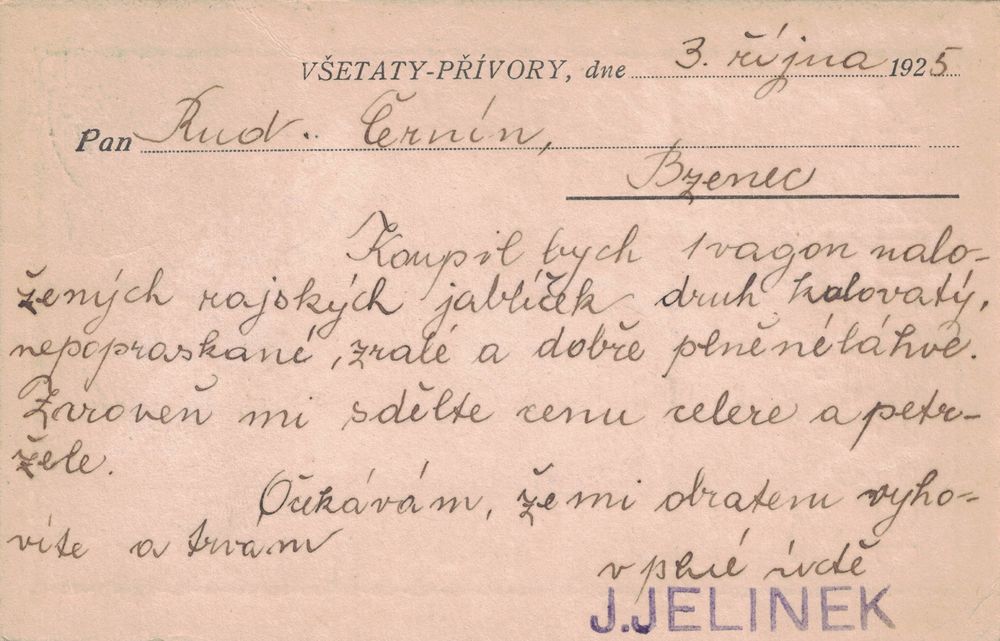 VŠETATY-PŘÍVORY, dne 3. října 1925
Pan Rud. Černín,
Bzenec
Koupil bych 1 vagon nalo-
žených rajských jablíček druh kulovatý,
nepopraskané, zralé a dobře plněné láhve.
Zvroveň mi sdělte cenu celere a petr-
žele.
Očekávám, že mi obratem vyho-
víte a trvám
v plné úctě
J.JELINEK